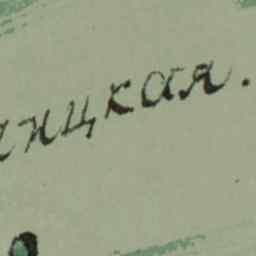 нцкая.